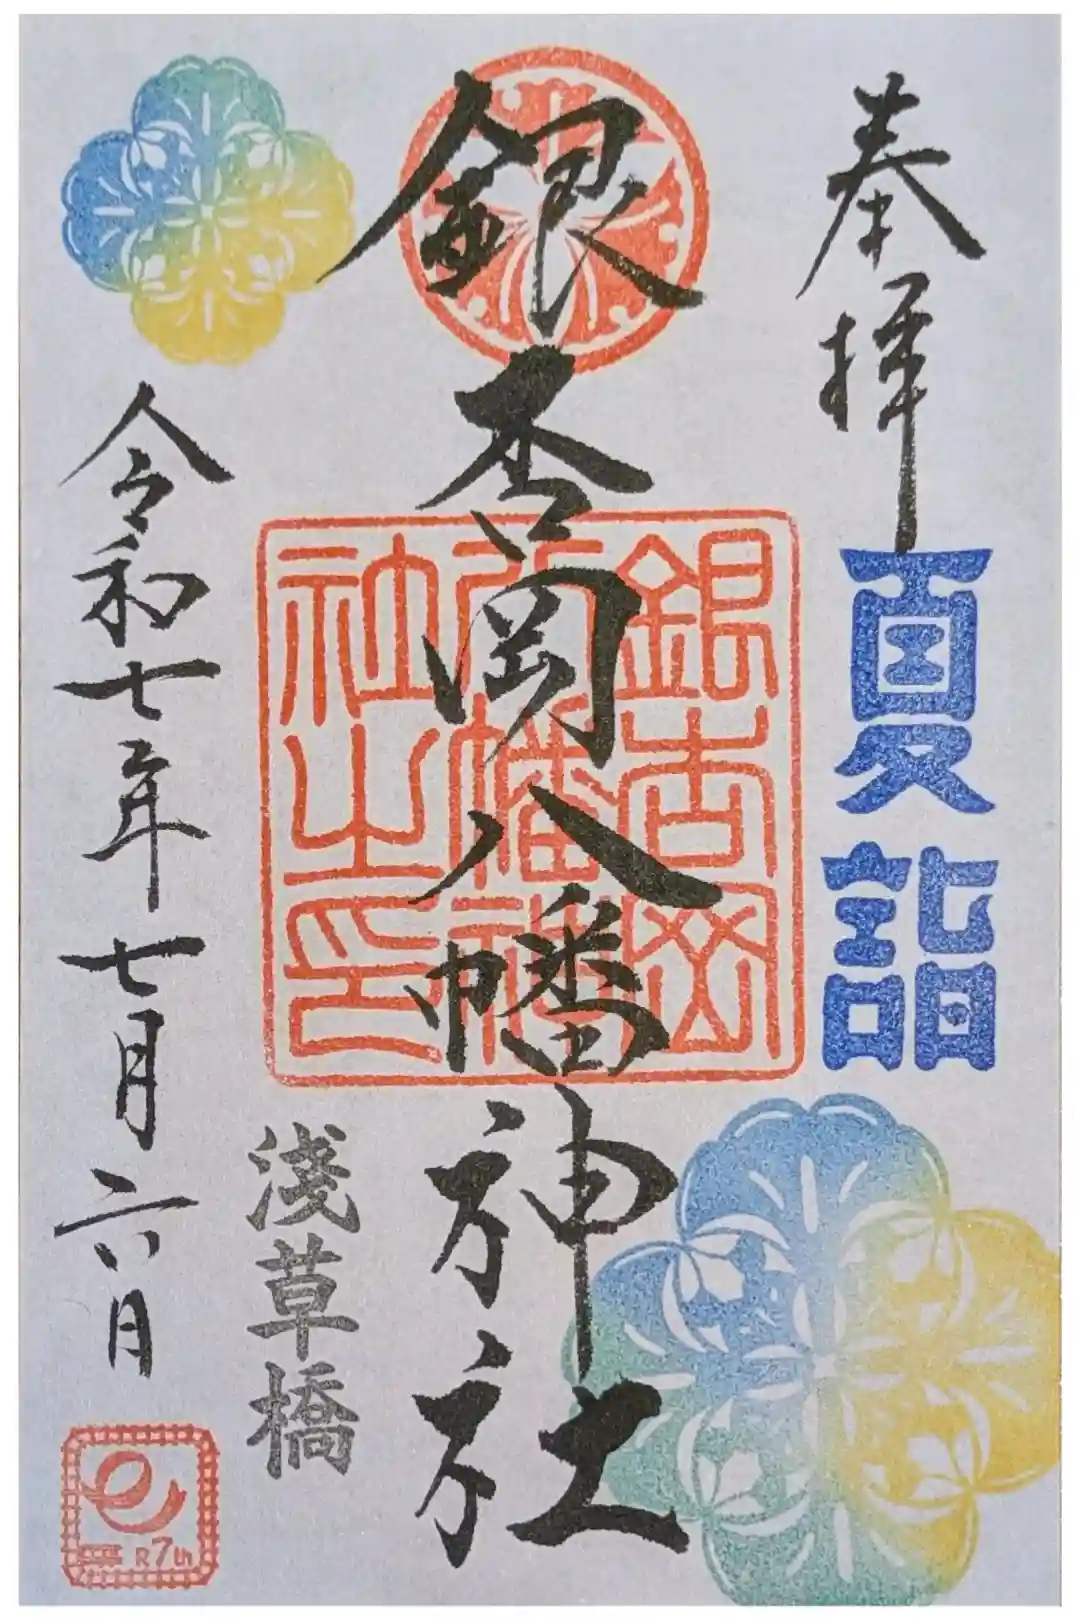 奉拝
夏詣
銀杏岡八幡神社
銀杏岡
八幡神
社之印
淺草橋
令和七年七月六日
R7th